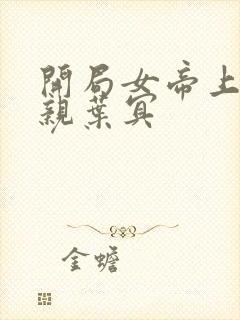 開局女帝上
親葉宜
金蟾